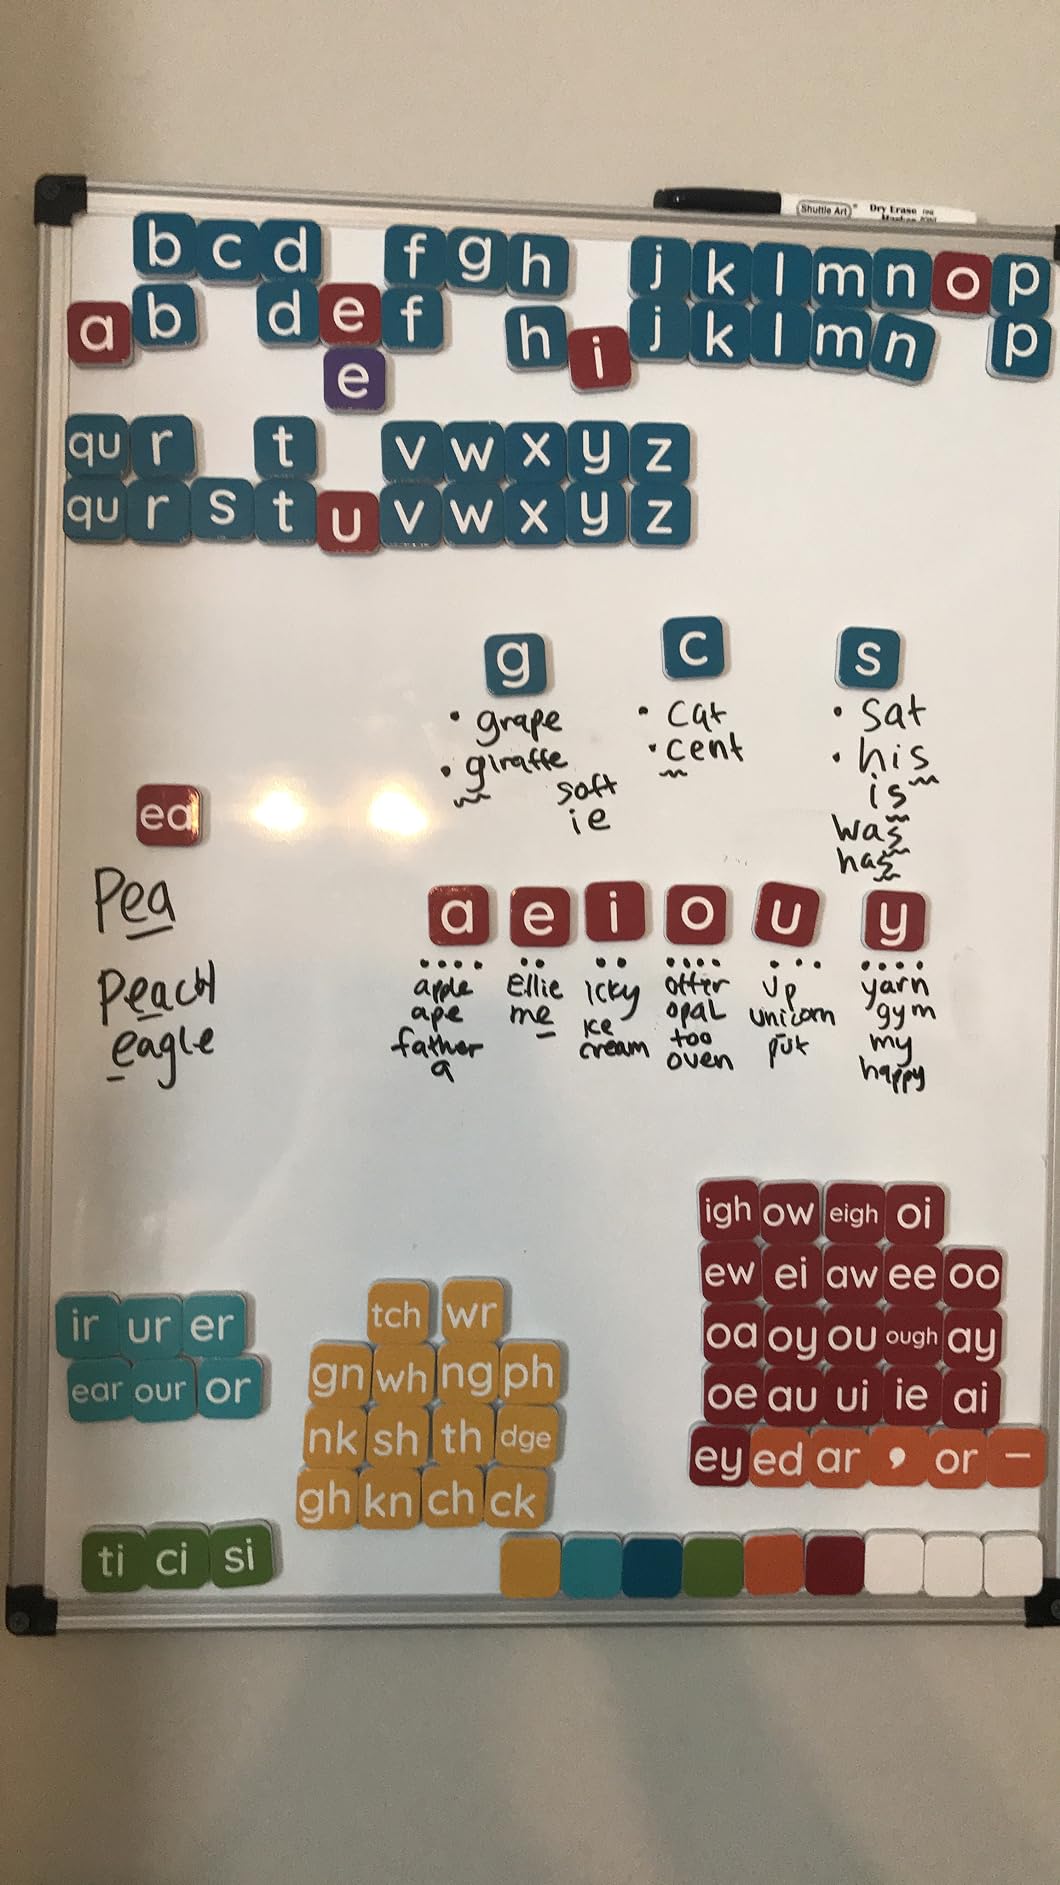 Shuttle Art Dry Erase
b c d f g h j k l m n o p
a b d e f h i j k l m n p
e
qu r t v w x y z
qu r s t u v w x y z
g c s
• grape • cat • sat
• giraffe • cent • his
soft is
ie was
has
ea
Pea
Peach
eagle
a e i o u y
apple Ellie icky otter up yarn
ape me ice opal unicorn gym
father cream too put my
a oven happy
igh ow eigh oi
ew ei aw ee oo
oa oy ou ough ay
oe au ui ie ai
ey ed ar , or –
ir ur er
ear our or
tch wr
gn wh ng ph
nk sh th dge
gh kn ch ck
ti ci si